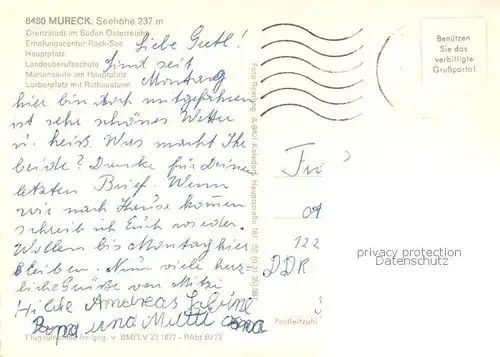 8480 MURECK. Seehöhe 237 m
Grenzstadt im Süden Österreichs
Erholungscenter Röck-See
Hauptplatz
Landesberufsschule
Mariensäule am Hauptplatz
Lurberplatz mit Rathausturm
Liebe Gretl!
Sind seit
Montag
hier bin auch mitgefahren
ist sehr schönes Wetter
u. heiß. Was macht Ihr
beide? Danke für Deinen
letzten Brief. Wenn
wir nach Hause kommen
schreib ich Euch wieder.
Wollen bis Montag hier
bleiben. Nun viele herz-
liche Grüße von Mitzi
Hilde Andreas Sabine
und
Flugaufnahme freigeg. v. BMFLV Zl 1877 - RAbt B/73
Benützen
Sie das
verbilligte
Grußporto!
Frö
122
DDR
Postleitzahl
privacy protection
Datenschutz